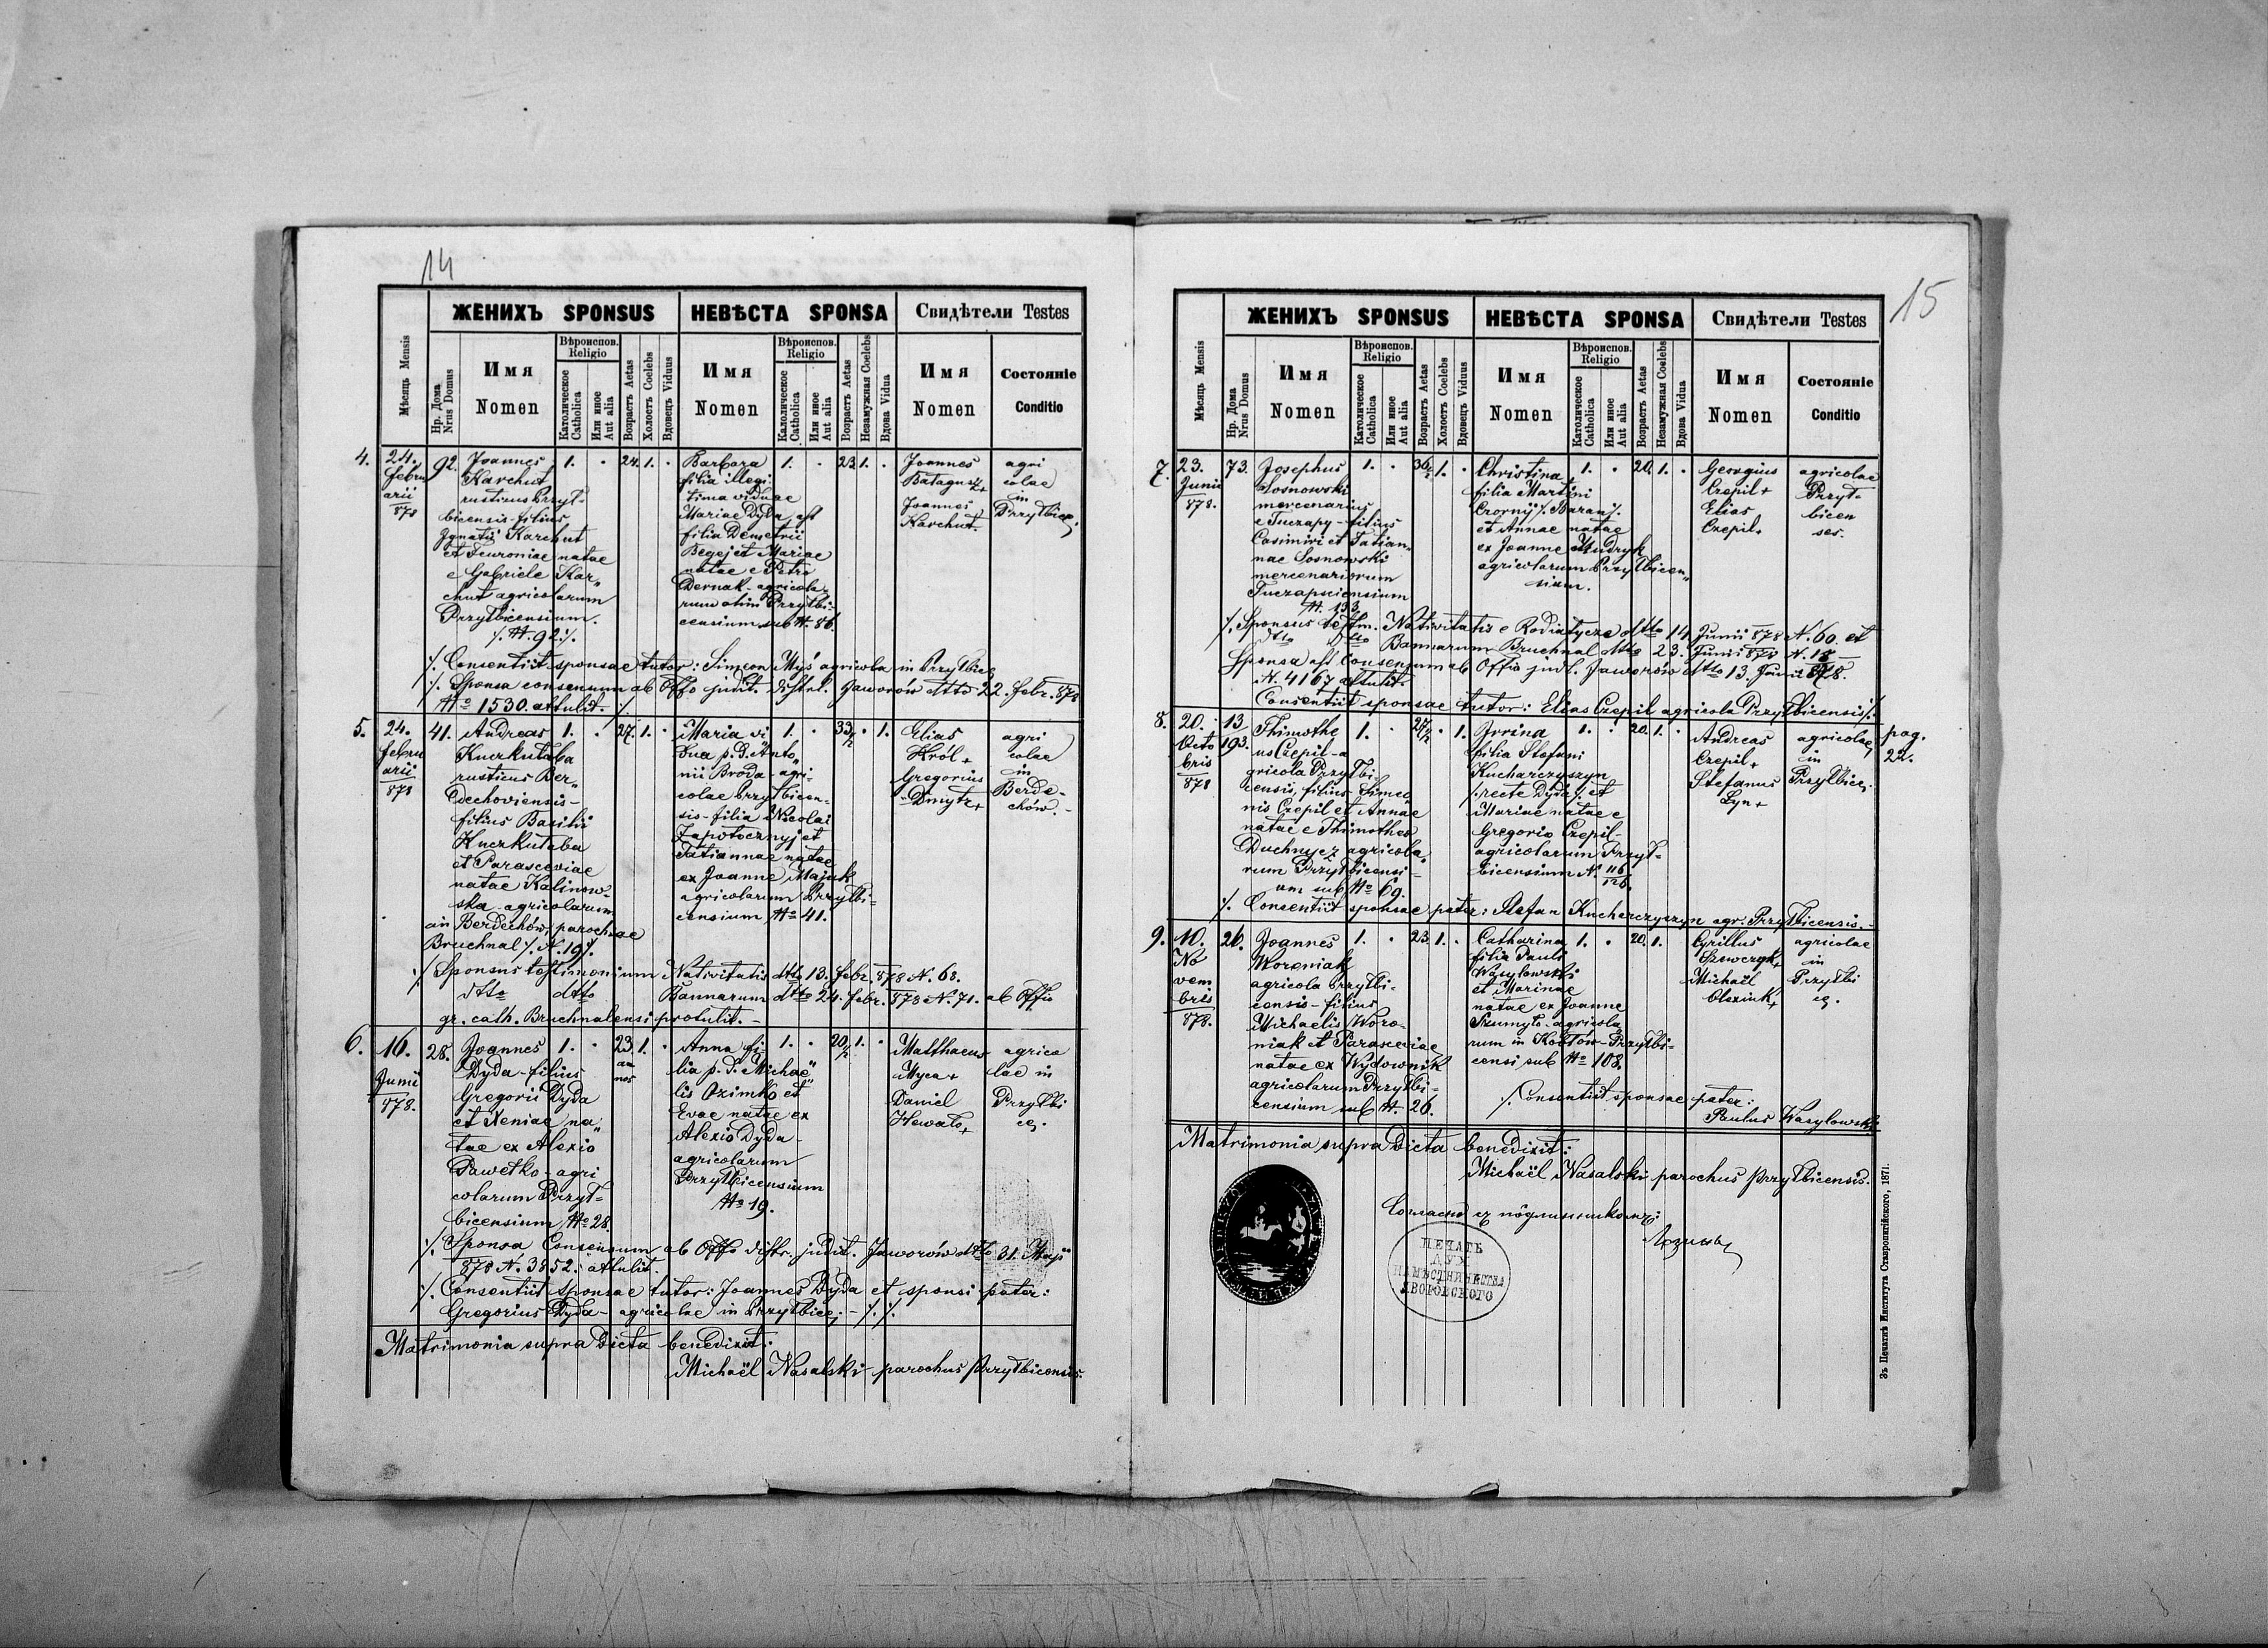 14
ЖЕНИХЪ SPONSUS
НЕВѢСТА SPONSA
Свидѣтели Testes
Мѣсяць Mensis
Нр. Дома
Nrus Domus
Имя
Nomen
Вѣроиспов.
Religio
Католическое
Catholica
Или иное
Aut alia
Возрастъ Aetas
Холостъ Coelebs
Вдовецъ Viduus
Имя
Nomen
Вѣроиспов.
Religio
Католическое
Catholica
Или иное
Aut alia
Возрастъ Aetas
Незамужная Coelebs
Вдова Vidua
Имя
Nomen
Состоянiе
Conditio
4.
24.
Febru
arii
878
92.
Joannes
Karchut
rusticus Przył-
bicensis-filius
Ignatii Karchut
et Feuroniae natae
e Gabriele Kar„
chut agricolarum
Przyłbicensium.
/. N. 92./.
1.
24.
1.
Barbara
filia illegi
tima viduae
Mariae Dyda est
filia Demetrii
Begej et Mariae
natae e Petro
Dernak-agricola„
rum olim Przyłbi-
censium sub N. 86.
1.
23.
1.
Joannes
Batagus+
Joannes
Karchut.
agri
colae
in
Przyłbice
/. Consentiit sponsae tutor: Simeon Myś agricola in Przyłbice
/. Sponsa consensum ab Offo judit. distrl. Jaworów dtto 22. febr. 878
No 1530. attulit. /.
5.
24.
Febru
arii
878
41.
Andreas
Knerkutaba
rusticus Ber„
dechoviensis-
filius Basilii
Knerkutaba
et Parasceviae
natae Kalinow-
ska agricolarum
in Berdechów, parochiae
Bruchnal /. N. 19/.
1.
27.
1.
Maria vi
dua p. d. Anto„
nii Broda-agri-
colae Przyłbicen-
sis-filia Nicolai
Zapotocznyj et
Tatiannae natae
ex Joanne Majuk
agricolarum Przyłbi=
censium No 41.
1.
33½
1.
Elias
Król +
Gregorius
Dmytr+
agri
colae
in
Berde-
chów.-
/. Sponsus testimonium Nativitatis dtto 13. febr. 878 N. 68.
dtto dtto Bannarum dtto 24. febr. 878 N. 71. ab Offio
gr. cath. Bruchnalensi protulit.-
6.
16.
Junii
878.
28.
Joannes
Dyda-filius
Gregorii Dyda
et Xeniae na„
tae ex Alexio
Pawełko-agri
colarum Przył=
bicensium No 28.
1.
23
an
nos
1.
Anna fi
lia p. d. Michae„
lis Ozimko et
Evae natae ex
Alexio Dyda-
agricolarum
Przyłbicensium
No 19.
1.
20½
1.
Matthaeus
Myca +
Daniel
Hewało+
agrico
lae in
Przyłbi
ce.
/. Sponsa Consensum ab Offo distr. judit. Jaworów dtto 31. Maji
878 N. 3852. attulit.
/. Consentiit sponsae tutor: Joannes Dyda et sponsi pater:
Gregorius Dyda-agricolae in Przyłbice.-/./.
Matrimonia supra dicta benedixit:
Michaël Nasalski parochus Przyłbicensis.
15
ЖЕНИХЪ SPONSUS
НЕВѢСТА SPONSA
Свидѣтели Testes
Мѣсяць Mensis
Нр. Дома
Nrus Domus
Имя
Nomen
Вѣроиспов.
Religio
Католическое
Catholica
Или иное
Aut alia
Возрастъ Aetas
Холостъ Coelebs
Вдовецъ Viduus
Имя
Nomen
Вѣроиспов.
Religio
Католическое
Catholica
Или иное
Aut alia
Возрастъ Aetas
Незамужная Coelebs
Вдова Vidua
Имя
Nomen
Состоянiе
Conditio
7.
23.
Junii
878.
73.
Josephus
Sosnowski
mercenarius
e Tuczapy-filius
Casimiri et Tatian„
nae Sosnowski
mercenariorum
Tuczapsciensium
N. 133
1.
36½
1.
Christina
filia Martini
Czornij /. Baran/.
et Annae natae
ex Joanne Mudryk
agricolarum Przyłbicen„
sium.
1.
20.
1.
Georgius
Czepil +
Elias
Czepil.
agricolae
Przył=
bicen
ses.
/. Sponsus testm. Nativitatis e Rodiatycze dtto 14. Junii 878 N. 60. et
dtto dtto Bannarum Bruchnal dtto 23. Junii 878 N. 18
Sponsa est Consensum ab Offio judl. Jaworów dtto 13. Junii 878.
N. 4167 attulit.
Consentiit sponsae tutor: Elias Czepil agricola Przyłbicensis/.
8.
20.
Octo
bris
878
13.
193.
Thimothe
us Czepil-a
gricola Przyłbi-
censis, filius Simeo
nis Czepil et Annae
natae e Thimotheo
Duchnycz agricola„
rum Przyłbicensi-
um sub No 69.
1.
27½
1.
Irrina
filia Stefani
Kucharczyszyn
/. recte Dyda/. et
Mariae natae e
Gregorio Czepil-
agricolarum Przył=
bicensium N. 116/126.
1.
20.
1.
Andreas
Czepil+
Stefanus
Łyn+
agricolae
in
Przyłbice.
pag.
22.
/. Consentiit sponsae pater: Stefan Kucharczyszyn agr. Przyłbicensis.-
9.
10.
No
vem
bris
878.
26.
Joannes
Woreniak
agricola Przyłbi-
censis-filius
Michaelis Woro-
niak et Parasceviae
natae ex Wydownik
agricolarum Przyłbi-
censium sub N. 26.
1.
23.
1.
Catharina
filia Pauli
Wasylowski
et Marinae
natae ex Joanne
Szumyło-agricola
rum in Kołtów-Przyłbi=
censi sub No 108.
1.
20.
1.
Cyrillus
Szewczyk+
Michaël
Olexiuk+
agricolae
in
Przyłbi
ce.
/. Consentiit sponsae pater:
Paulus Wasylowski
Matrimonia supra dicta benedixit:
Michaël Nasalski parochus Przyłbicensis.
Согласно съ подлинникомъ:
ПЕЧАТЬ
ДУХ.
НАМѢСТНИЧЕСТВА
ЯВОРОВСКОГО
Зъ Печатнѣ Института Ставропигійского, 1871.